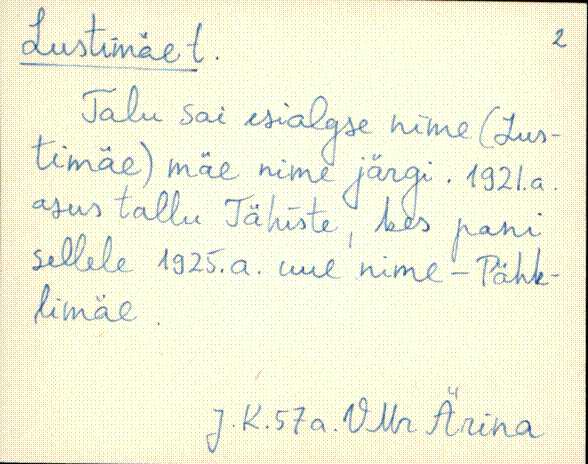 Lustimäe t. 2
Talu sai esialgse nime (Lus-
timäe) mäe nime järgi. 1921.a.
asus tallu Tähiste, kes pani
sellele 1925.a. uue nime – Pähk-
limäe.
J.K. 57a. VMr Ärina